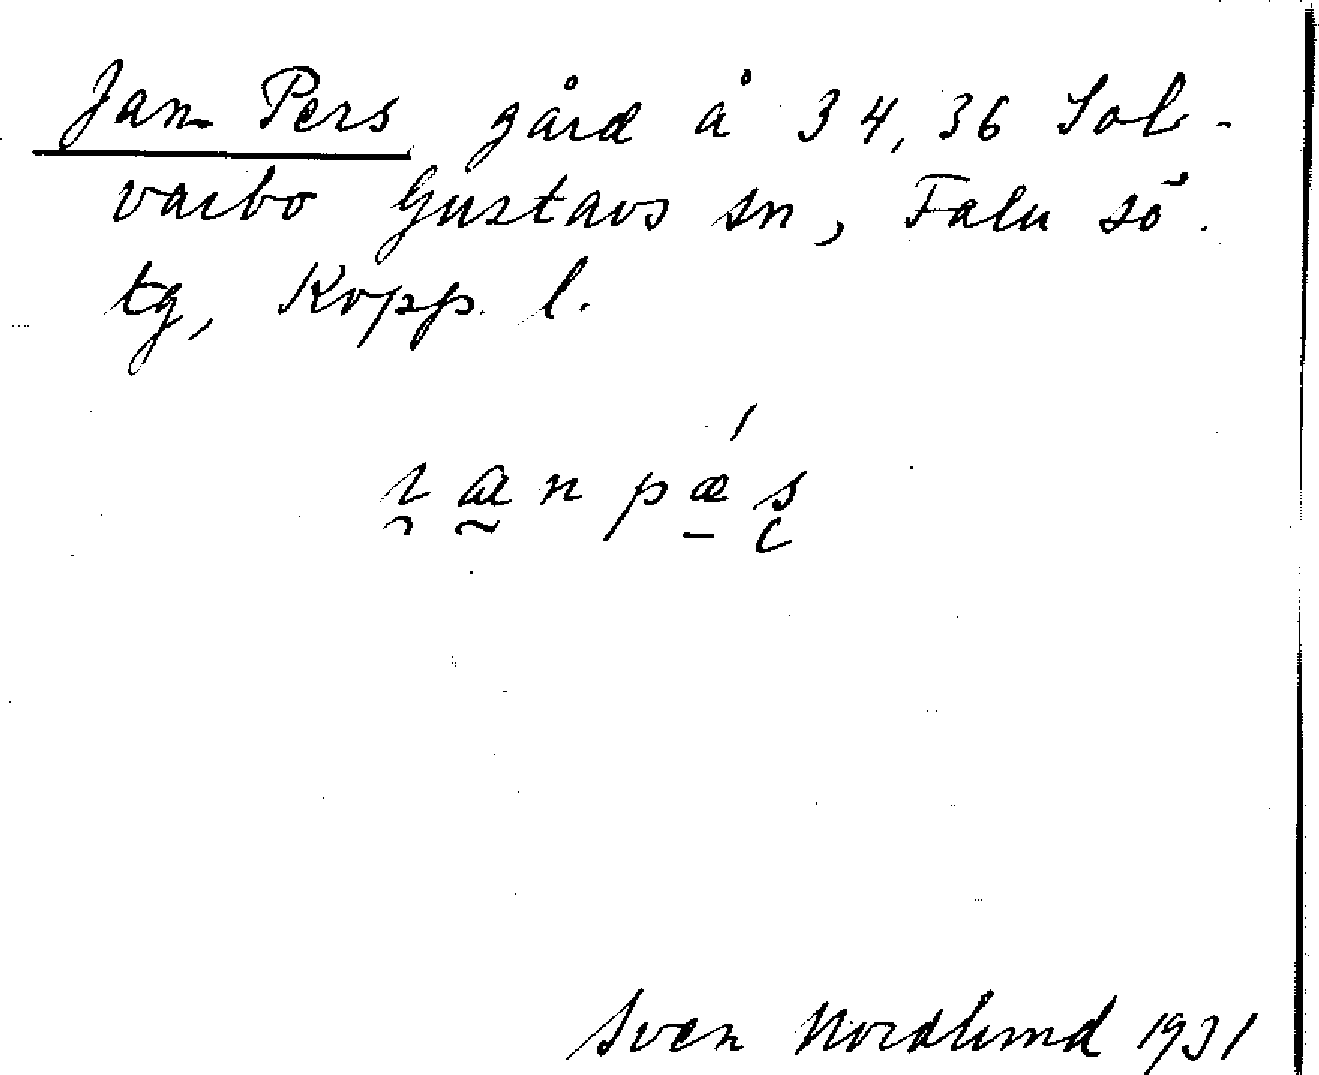 Jan Pers gård å 34, 36 Sol-
varbo Gustavs sn, Falu sö.
tg, Kopp. l.
ɩ̯ a̰ n p ǽ̱ s̨
Sven Nordlund 1931